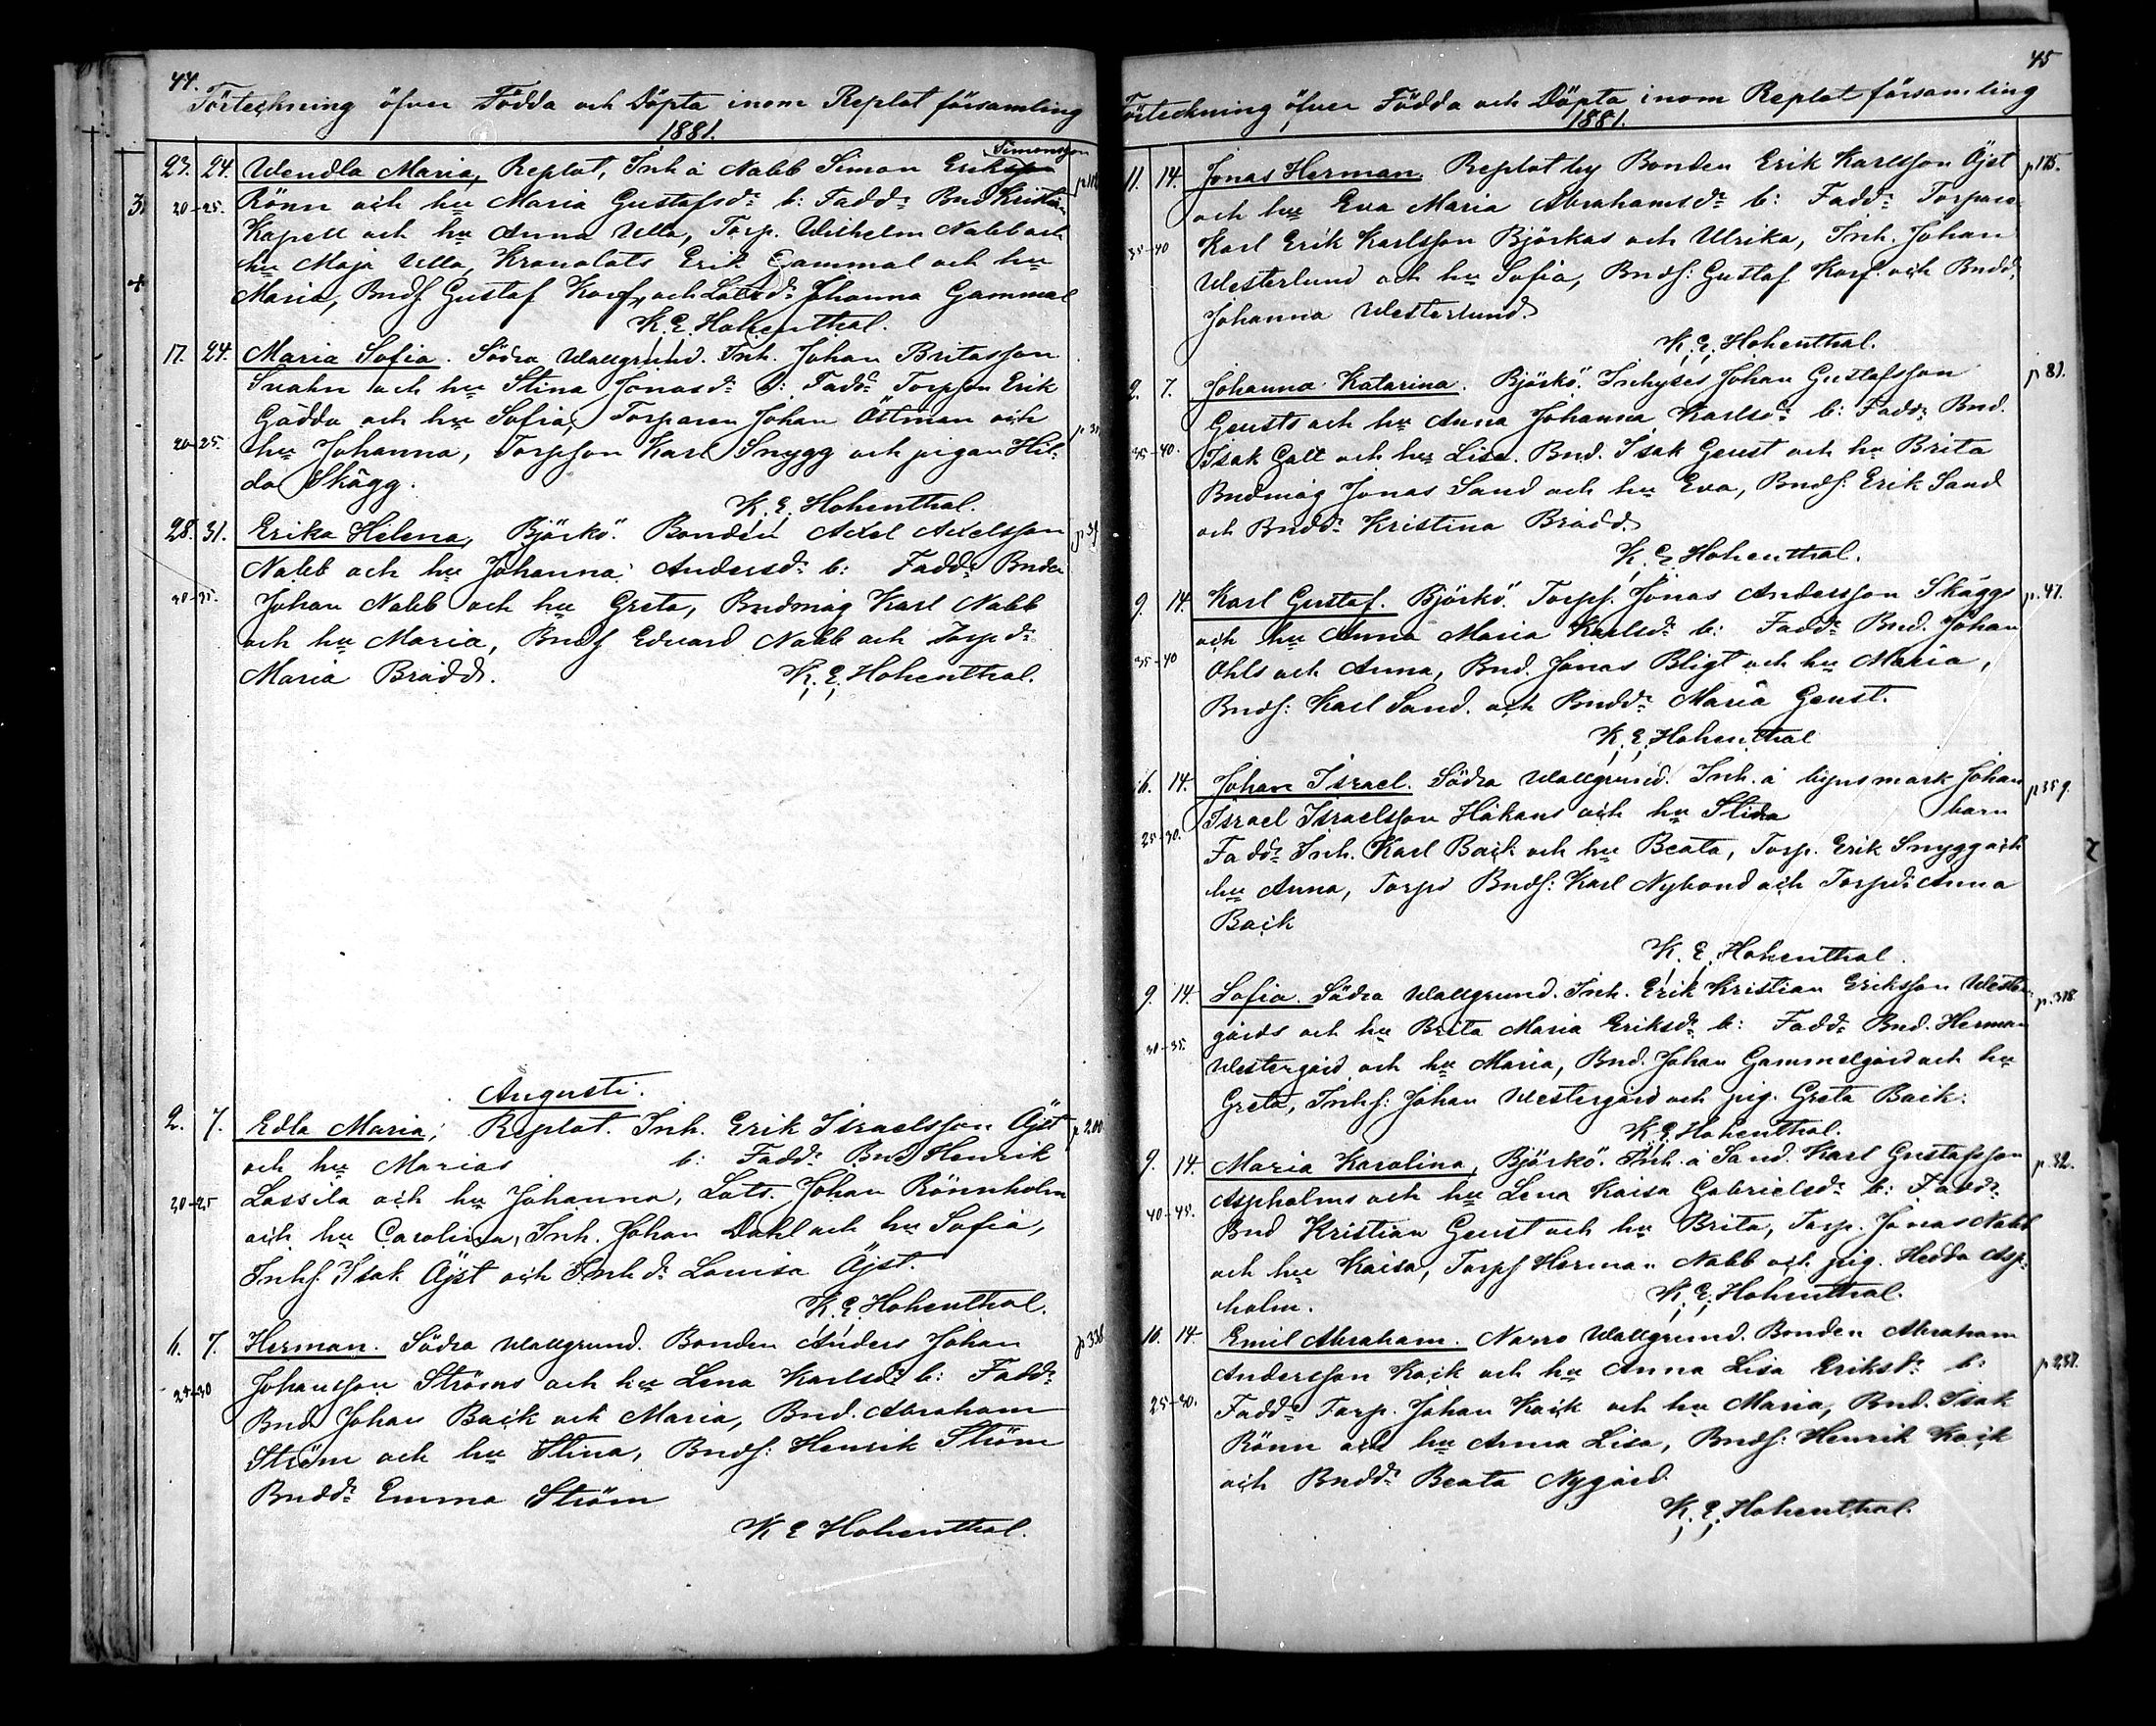 44.
Förteckning öfver Födda och Döpta inom Replot församling
1881.
23. 24. Wendla Maria, Replot, Inh å Nabb Simon Eriksson Simonsson
20-25. Rönn och hu Maria Gustafsdr b: Faddr Bnd Kristian
Kapell och hu Anna Ulla, Torp. Wilhelm Nabb och
hu Maja Ulla, Kronolots Erik Gammal och hu
Maria, Bnds Gustaf Korf, och Lotsdr Johanna Gammal
K. E. Hohenthal.
17. 24. Maria Sofia. Södra Wallgrund. Inh. Johan Britasson
Svahn och hu Stina Jonasdr b: Faddr Torpson Erik
Gädda och hu Sofia, Torparen Johan Östman och
20-25. hu Johanna, Torpson Karl Snygg och pigan Hil-
da Skägg.
K. E. Hohenthal.
28. 31. Erika Helena, Björkö. Bonden Axel Axelsson
Nabb och hu Johanna Andersdr b: Faddr Bnden
30-35. Johan Nabb och hu Greta, Bndmåg Karl Nabb
och hu Maria, Bnds Edvard Nabb och Torpdr
Maria Brädd. K. E. Hohenthal.
Augusti.
2. 7. Edla Maria, Replot. Inh. Erik Israelsson Öjst p 200
och hu Marias b: Faddr Bnd Henrik
20-25 Lassila och hu Johanna, Lots. Johan Rönnholm
och hu Carolina, Inh. Johan Dahl och hu Sofia,
Inhs. Isak Öjst och Inhdr Lovisa Öjst.
K. E. Hohenthal.
6. 7. Herman. Södra Wallgrund. Bonden Anders Johan p 338
25-30 Johansson Ströms och hu Lena Karlsdr b: Faddr
Bnd Johan Back och Maria, Bnd. Abraham
Ström och hu Stina, Bnds: Henrik Ström
Bnddr Emma Ström
K E Hohenthal.
45
Förteckning öfver Födda och Döpta inom Replot församling
1881.
11. 14. Jonas Herman. Replot by Bonden Erik Karlsson Öjst p 175.
och hu Eva Maria Abrahamsdr b: Faddr Torparen
35-40 Karl Erik Karlsson Björkas och Ulrika, Inh. Johan
Westerlund och hu Sofia, Bnds: Gustaf Korf och Bnddr
Johanna Westerlund
K. E. Hohenthal.
2. 7. Johanna Katarina. Björkö. Inhyses Johan Gustafsson p 81.
Geusts och hu Anna Johanna Karlsdr b: Faddr Bnd.
35-40. Isak Galt och hu Lisa. Bnd. Isak Geust och hu Brita
Bndmåg Jonas Sand och hu Eva, Bnds: Erik Sand
och Bnddr Kristina Brädd.
K. E. Hohenthal.
9. 14. Karl Gustaf. Björkö. Torps. Jonas Andersson Skäggs p. 47.
och hu Anna Maria Karlsdr b: Faddr Bnd. Johan
35-40 Ohls och Anna, Bnd. Jonas Bligt och hu Maria,
Bnds: Karl Sand. och Bnddr Maria Geust.
K. E. Hohenthal
6. 14. Johan Israel. Södra Wallgrund. Inh. å byns mark Johan p 359.
Israel Israelsson Håkans och hu Stina barn
25-30. Faddr Inh. Karl Back och hu Beata, Torp. Erik Snygg och
hu Anna, Torps Bnds: Karl Nybond och Torpdr Anna
Back
K. E. Hohenthal.
9. 14. Sofia. Södra Wallgrund. Inh. Erik Kristian Eriksson Wester-
30-35. gårds och hu Brita Maria Eriksdr b: Faddr Bnd. Herman
Westergård och hu Maria, Bnd. Johan Gammelgård och hu
Greta, Inhs: Johan Westergård och pig. Greta Back.
K. E. Hohenthal.
9. 14. Maria Karolina, Björkö. Inh. å Sand. Karl Gustafsson p. 32.
Aspholms och hu Lena Kaisa Gabrielsdr b: Faddr
40-45. Bnd Kristian Geust och hu Brita, Torp. Jonas Nabb
och hu Kaisa, Torps Herman Nabb och pig. Hedda Asp-
holm. K. E. Hohenthal.
10. 14 Emil Abraham. Norra Wallgrund. Bonden Abraham
Andersson Kack och hu Anna Lisa Eriksdr b: p 237.
25-30. Faddr Torp. Johan Kack och hu Maria, Bnd. Isak
Rönn och hu Anna Lisa, Bnds: Henrik Kack
och Bnddr Beata Nygård
K. E. Hohenthal.